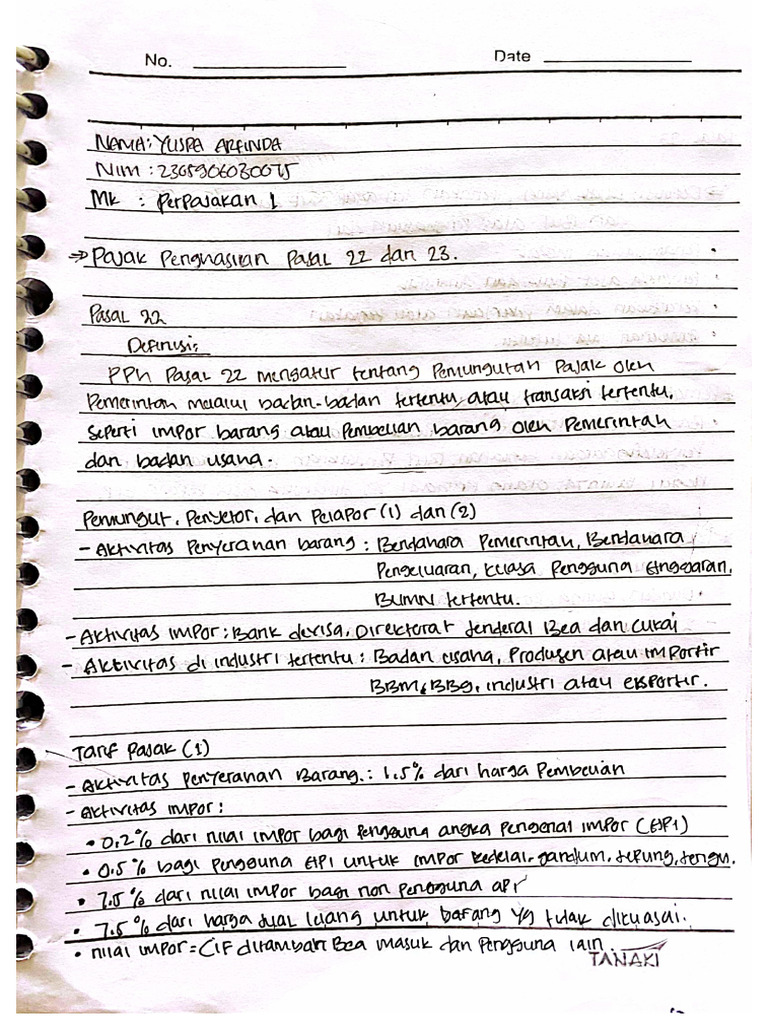 No.
Date
NAMA : YUSPA ARFINDA
NIM : 2305906030075
MK : Perpajakan 1
⇒ Pajak Penghasilan Pasal 22 dan 23.
Pasal 22
Definisi:
PPh Pasal 22 mengatur tentang Pemungutan Pajak oleh
Pemerintah melalui badan-badan tertentu, atau transaksi tertentu,
seperti impor barang atau Pembelian barang oleh Pemerintah
dan badan usaha.
Pemungut, Penyetor, dan Pelapor (1) dan (2)
- Aktivitas Penyerahan barang : Bendahara Pemerintah, Bendahara
Pengeluaran, Kuasa Pengguna Anggaran,
BUMN tertentu.
- Aktivitas impor : Bank devisa, Direktorat Jenderal Bea dan Cukai
- Aktivitas di industri tertentu : Badan usaha, Produsen atau Importir
BBM, BBG, industri atau eksportir.
Tarif Pajak (1)
- Aktivitas Penyerahan Barang : 1.5% dari harga Pembelian
- Aktivitas impor :
• 0.2% dari nilai impor bagi Pengguna angka Pengenal impor (API)
• 0.5% bagi Pengguna API untuk impor kedelai, gandum, tepung, terigu.
• 7.5% dari nilai impor bagi non Pengguna api
• 7.5% dari harga jual lelang untuk barang yg tidak dikuasai.
• nilai impor = CIF ditambah Bea masuk dan Pengguna lain
TANAKI